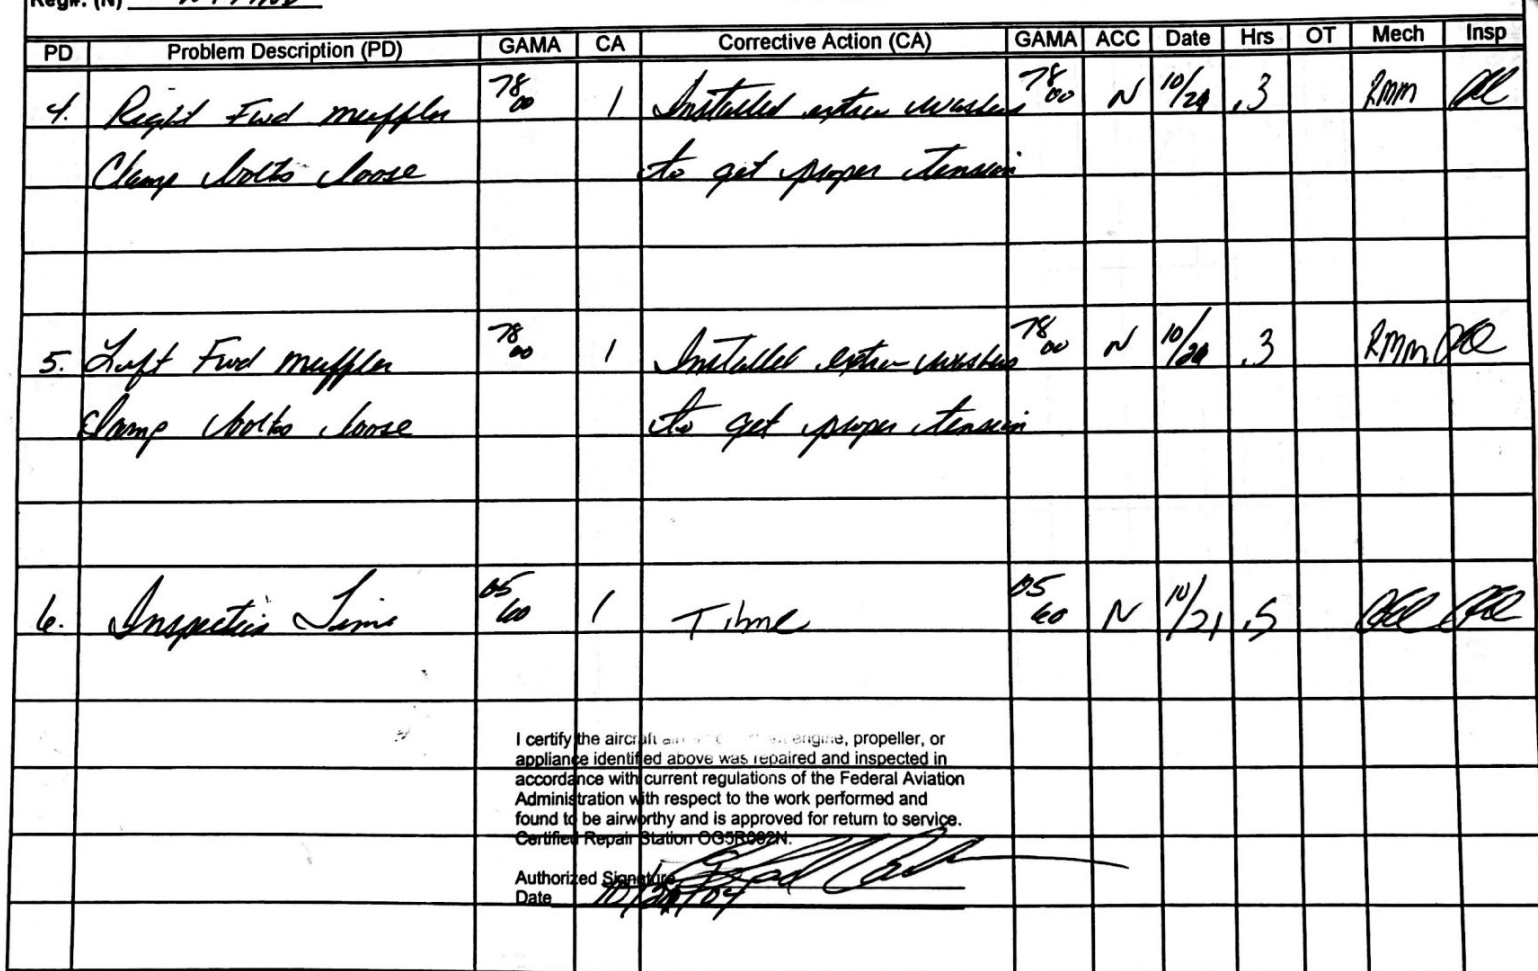 Reg#: (N)
PD Problem Description (PD) GAMA CA Corrective Action (CA) GAMA ACC Date Hrs OT Mech Insp
4. Right Fwd muffler 78 00 1 Installed extra washers 78 00 N 10/20 .3 RMM
Clamp bolts loose to get proper tension
5. Left Fwd muffler 78 00 1 Installed extra washers 78 00 N 10/20 .3 RMM
Clamp bolts loose to get proper tension
6. Inspection Time 05 60 1 Time 05 60 N 10/21 .5
I certify the aircraft engine, propeller, or
appliance identified above was repaired and inspected in
accordance with current regulations of the Federal Aviation
Administration with respect to the work performed and
found to be airworthy and is approved for return to service.
Certified Repair Station OG5R082N.
Authorized Signature
Date